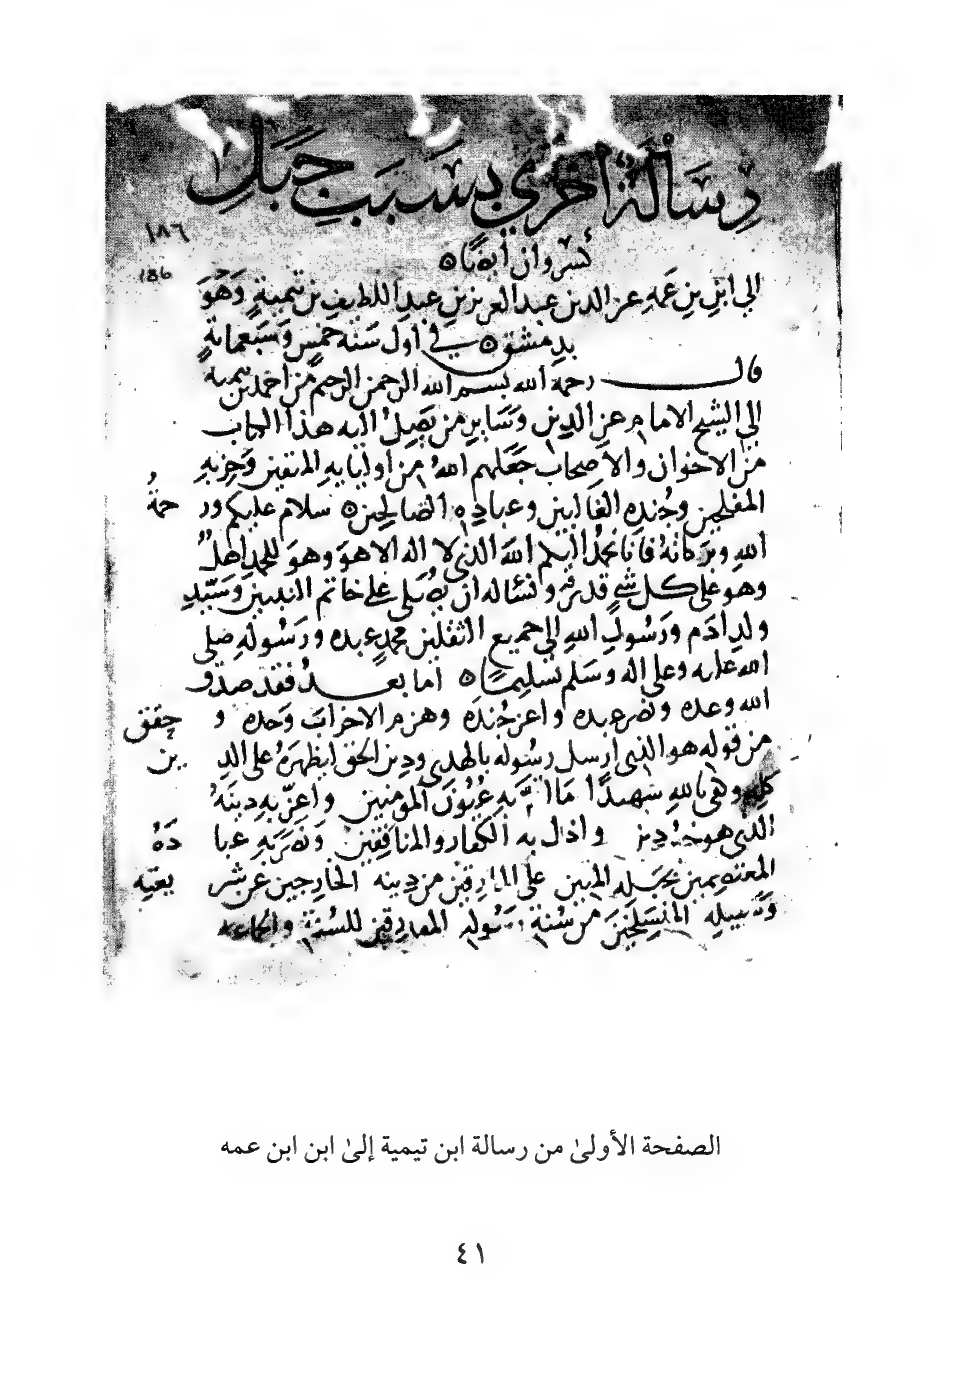 رسالة اخرى بسبب جبل
١٨٦
كسروان أيضًا
186
الى ابن بن عمه عز الدين عبد العزيز بن عبد اللطيف بن تيمية وهو
بدمشق في اول سنة خمس وسبعماية
قال رحمه الله بسم الله الرحمن الرحيم من احمد بن تيمية
الى الشيخ الامام عز الدين وساير من يصل اليه هذا الكتاب
من الاخوان والاصحاب جعلهم الله من أوليايه المتقين وحزبه
المفلحين وجنده الغالبين وعباده الصالحين سلام عليكم ورحمة
الله وبركاته فانا نحمد اليكم الله الذي لا اله الا هو وهو للحمد اهل
وهو على كل شي قدير ونسئاله ان يصلي على خاتم النبيين وسيد
ولد ادم ورسول الله الى جميع الثقلين محمد عبده ورسوله صلى
الله عليه وعلى اله وسلم تسليمًا اما بعد فقد صدق
الله وعده ونصر عبده واعز جنده وهزم الاحزاب وحده و حقق
من قوله هو الذي ارسل رسوله بالهدى ودين الحق ليظهره على الدين
كله وكفى بالله شهيدًا ما اقر به عيون المومنين واعز به دينه
الذي هو دين واذل به الكفار والمنافقين ونصر به عباده
المعتصمين بحبله المتين على المارقين من دينه الخارجين عن شريعته
وسبيله المنسلخين من سنة رسوله المفارقين للسنة والجماعة
الصفحة الأولىٰ من رسالة ابن تيمية إلىٰ ابن ابن عمه
٤١